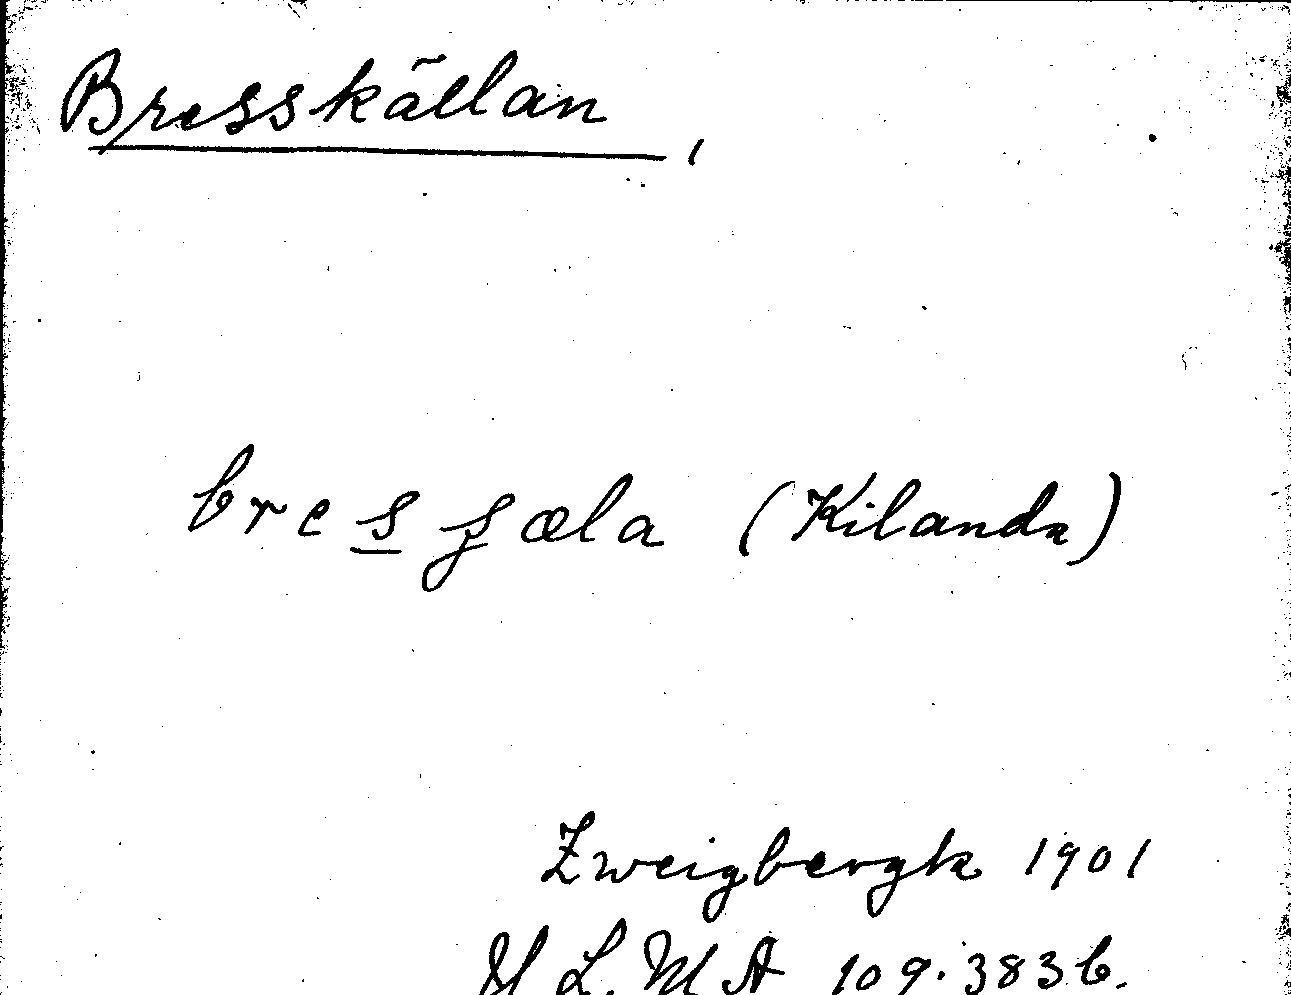 Bresskällan,
bresʂæla (Kilanda)
Zweigbergk 1901
U L. M A 109.383 b.